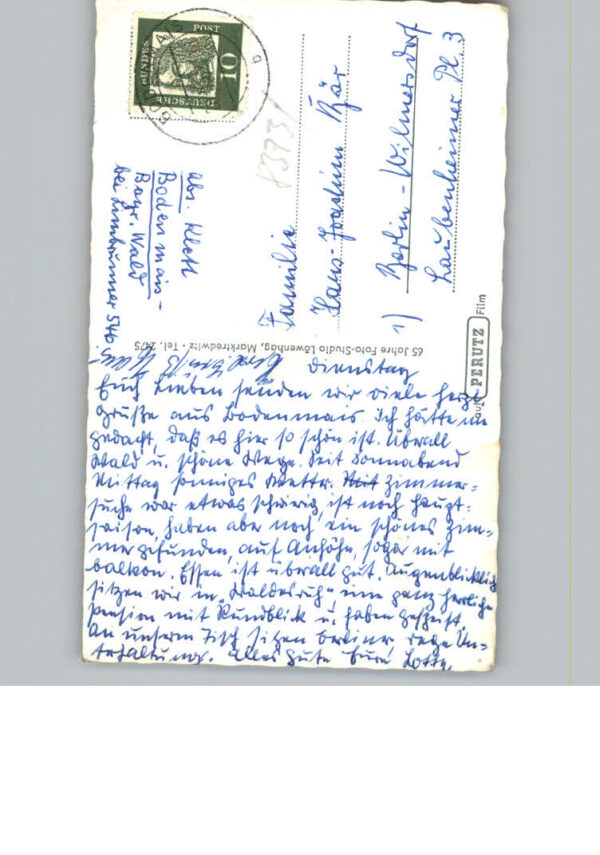 Dienstag
Euch Lieben senden wir viele herzl.
Grüße aus Bodenmais. Ich hätte nie
gedacht, daß es hier so schön ist. Überall
Wald u. schöne Wege. Seit Sonnabend
Mittag sonniges Wetter. Mit Zimmer=
suche war etwas schwierig, ist noch Haupt-
saison, haben aber noch ein schönes Zim-
mer gefunden, auf Anhöhe, sogar mit
Balkon. Essen ist überall gut. Augenblicklich
sitzen wir in "Waldesruh" eine ganz herrliche
Pension mit Rundblick u. haben gespeist.
An unserem Tisch sitzen Berliner, rege Un-
terhaltung. Alles Gute Eure Lotte
Abs. Klett
Bodenmais -
Bayr. Wald
bei 54b
DEUTSCHE BUNDESPOST
10
8373
Familie
Hans-Joachim Bär
1) Berlin-Wilmersdorf
Laubenheimer Pl. 3
65 Jahre Foto-Studio Löwenhag, Marktredwitz - Tel. 2475
auf PERUTZ Film